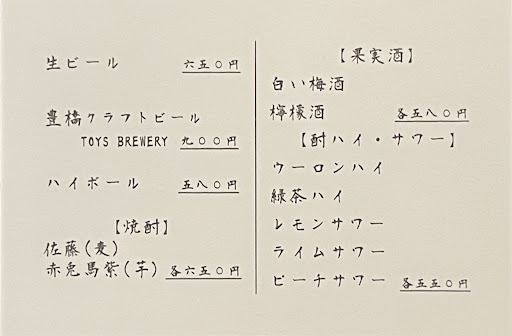 生ビール 六五〇円
豊橋クラフトビール
TOYS BREWERY 九〇〇円
ハイボール 五八〇円
【焼酎】
佐藤(麦)
赤兎馬紫(芋) 各六五〇円
【果実酒】
白い梅酒
檸檬酒 各五八〇円
【酎ハイ・サワー】
ウーロンハイ
緑茶ハイ
レモンサワー
ライムサワー
ピーチサワー 各五五〇円